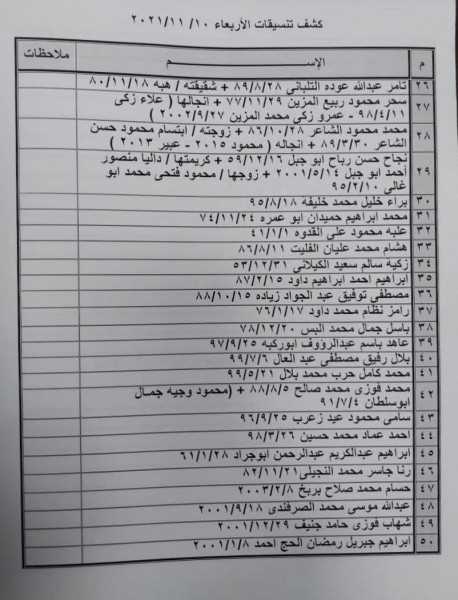 كشف تنسيقات الأربعاء ١٠/ ١١/ ٢٠٢١
م الإســـــم ملاحظات
٢٦ تامر عبدالله عوده التلباني ٨٩/٨/٢٨ + شقيقته / هبه ٨٠/١١/١٨
٢٧ سحر محمود ربيع المزين ٧٧/١١/٢٩ + انجالها ( علاء زكى
٩٨/٤/١١ - عمرو زكي محمد المزين ٢٠٠٢/٩/٢٧ )
٢٨ محمد محمود الشاعر ٨٦/١٠/٢٨ + زوجته / ابتسام محمود حسن
الشاعر ٨٩/٣/٣٠ + انجاله ( محمود ٢٠١٥ - عبير ٢٠١٣ )
٢٩ نجاح حسن رباح ابو جبل ٥٩/١٢/١٦ + كريمتها / داليا منصور
أحمد ابو جبل ٢٠٠١/٥/١٤ + زوجها / محمود فتحى محمد ابو
غالى ٩٥/٢/١٠
٣٠ براء خليل محمد خليفه ٩٥/٨/١٨
٣١ محمد ابراهيم حميدان ابو عمره ٧٤/١١/٢٤
٣٢ علبه محمود على القدوه ٤١/١/١
٣٣ هشام محمد عليان الفليت ٨٦/٨/١١
٣٤ زكيه سالم سعيد الكيلاني ٥٣/١٢/٣١
٣٥ ابراهيم احمد ابراهيم داود ٨٧/٢/١٥
٣٦ مصطفي توفيق عبد الجواد زياده ٨٨/١٠/١٥
٣٧ رامز نظام محمد داود ٧٦/١/١٧
٣٨ باسل جمال محمد البس ٧٨/١٢/٢٠
٣٩ عاهد باسم عبدالرؤوف ابوركبه ٩٧/٩/٢٥
٤٠ بلال رفيق مصطفى عبد العال ٩٩/٧/٦
٤١ محمد كامل حرب محمد بلال ٩٩/٥/٢١
٤٢ محمد فوزى محمد صالح ٨٨/٨/٥ + (محمود وجيه جمال
ابوسلطان ٩١/٧/٤
٤٣ سامى محمود عيد زعرب ٩٦/٩/٢٥
٤٤ احمد عماد محمد حسين ٩٨/٣/٢٦
٤٥ ابراهيم عبدالكريم عبدالرحمن ابوجراد ٦١/١/٢٨
٤٦ رنا جاسر محمد النجيلى ٨٢/١١/٢١
٤٧ حسام محمد صلاح بربخ ٢٠٠٣/٢/٨
٤٨ عبدالله موسى محمد الصرفندى ٢٠٠١/٩/١٨
٤٩ شهاب فوزى حامد جنيف ٢٠٠١/١٢/٢٩
٥٠ ابراهيم جبريل رمضان الحج احمد ٢٠٠١/١/٨